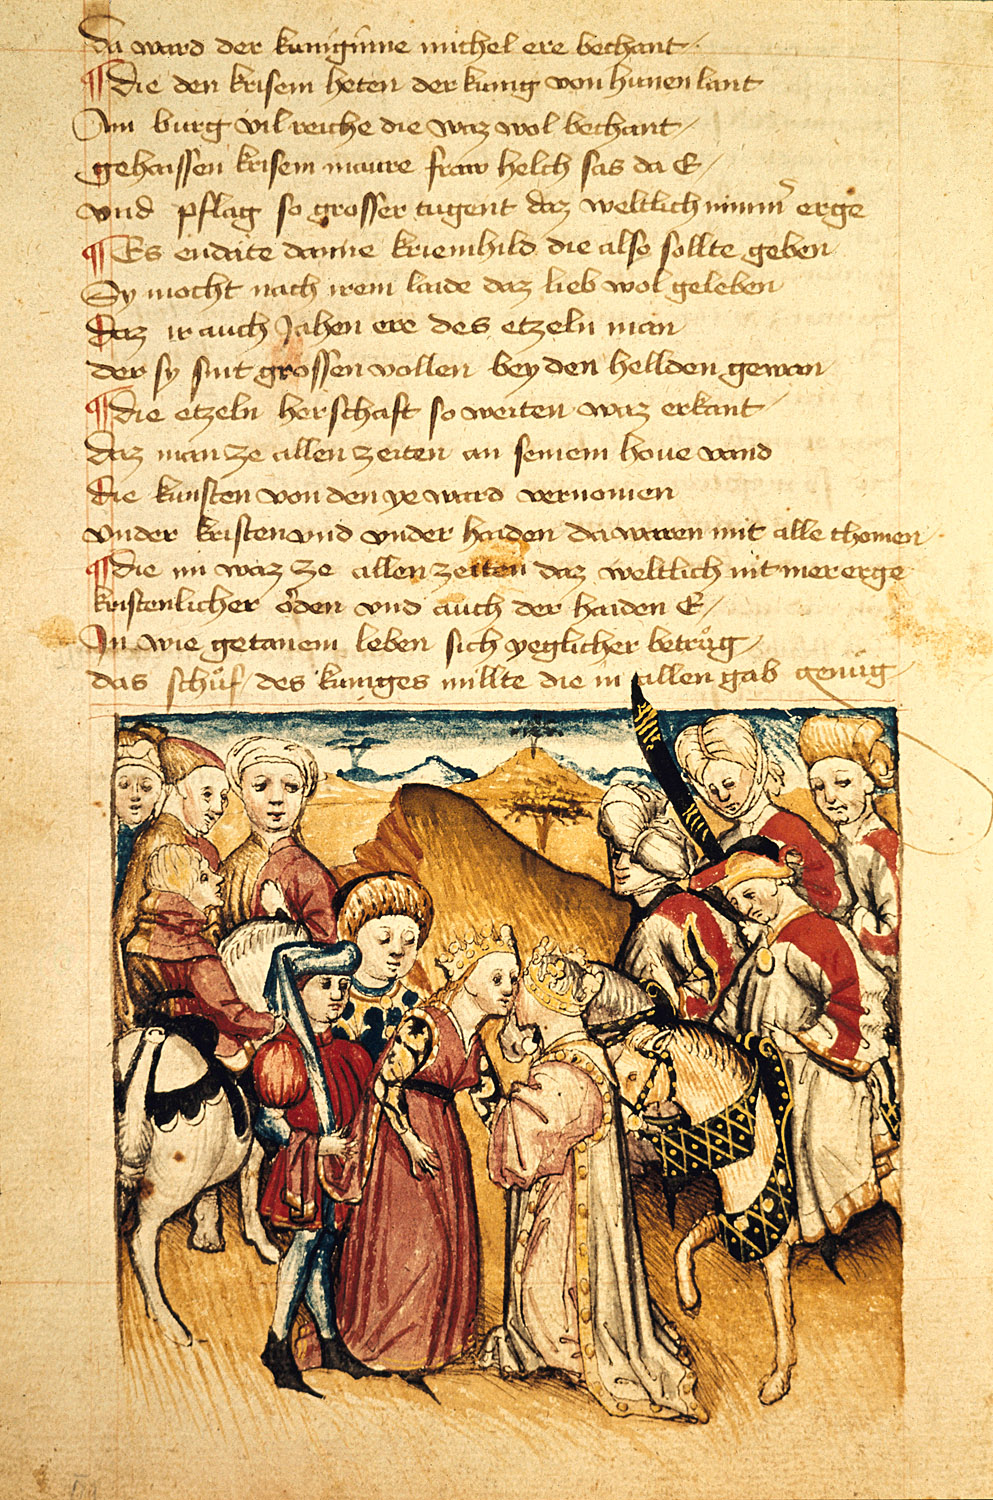 Da ward der kuniginne michel ere bechant
Die den krisem heten der kunig von hunen lant
Ain burg vil reiche die waz wol bechant
gehaissen krisem maure fraw helch sas da E
vnd pflag so grosser tugent daz weltlich nimmer erge
Es endaite danne kriemhild die also sollte geben
Sy mocht nach irem laide daz lieb wol geleben
Daz ir auch Jahen ere des etzeln man
der sy sint grossen vollen bey den hellden gewan
Die etzeln herschaft so weiten waz erkant
daz man ze allen zeiten an seinem houe vand
die kunsten von den ye ward vernomen
vnder kristen vnd vnder haiden da waren mit alle chomen
Die im waz ze allen zeiten daz weltlich nit mer erge
kristenlicher orden vnd auch der haiden E
In wie getanem leben sich yeglicher betrůg
das schůf des kuniges millte die in allen gab genůg